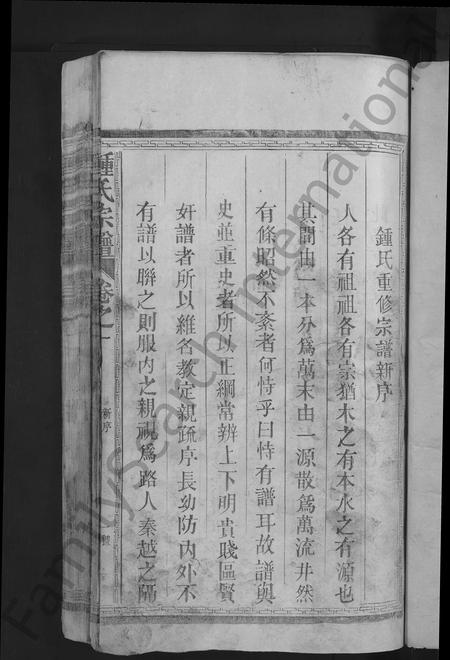 鍾氏重修宗譜新序
人各有祖祖各有宗猶木之有本水之有源也
其間由一本分爲萬末由一源散爲萬流井然
有條昭然不紊者何恃乎曰恃有譜耳故譜與
史並重史者所以正綱常辨上下明貴賤區賢
奸譜者所以維名教定親疏序長幼防內外不
有譜以聯之則服內之親視爲路人秦越之隔
鍾氏宗譜 卷之一
新序
FamilySearch International